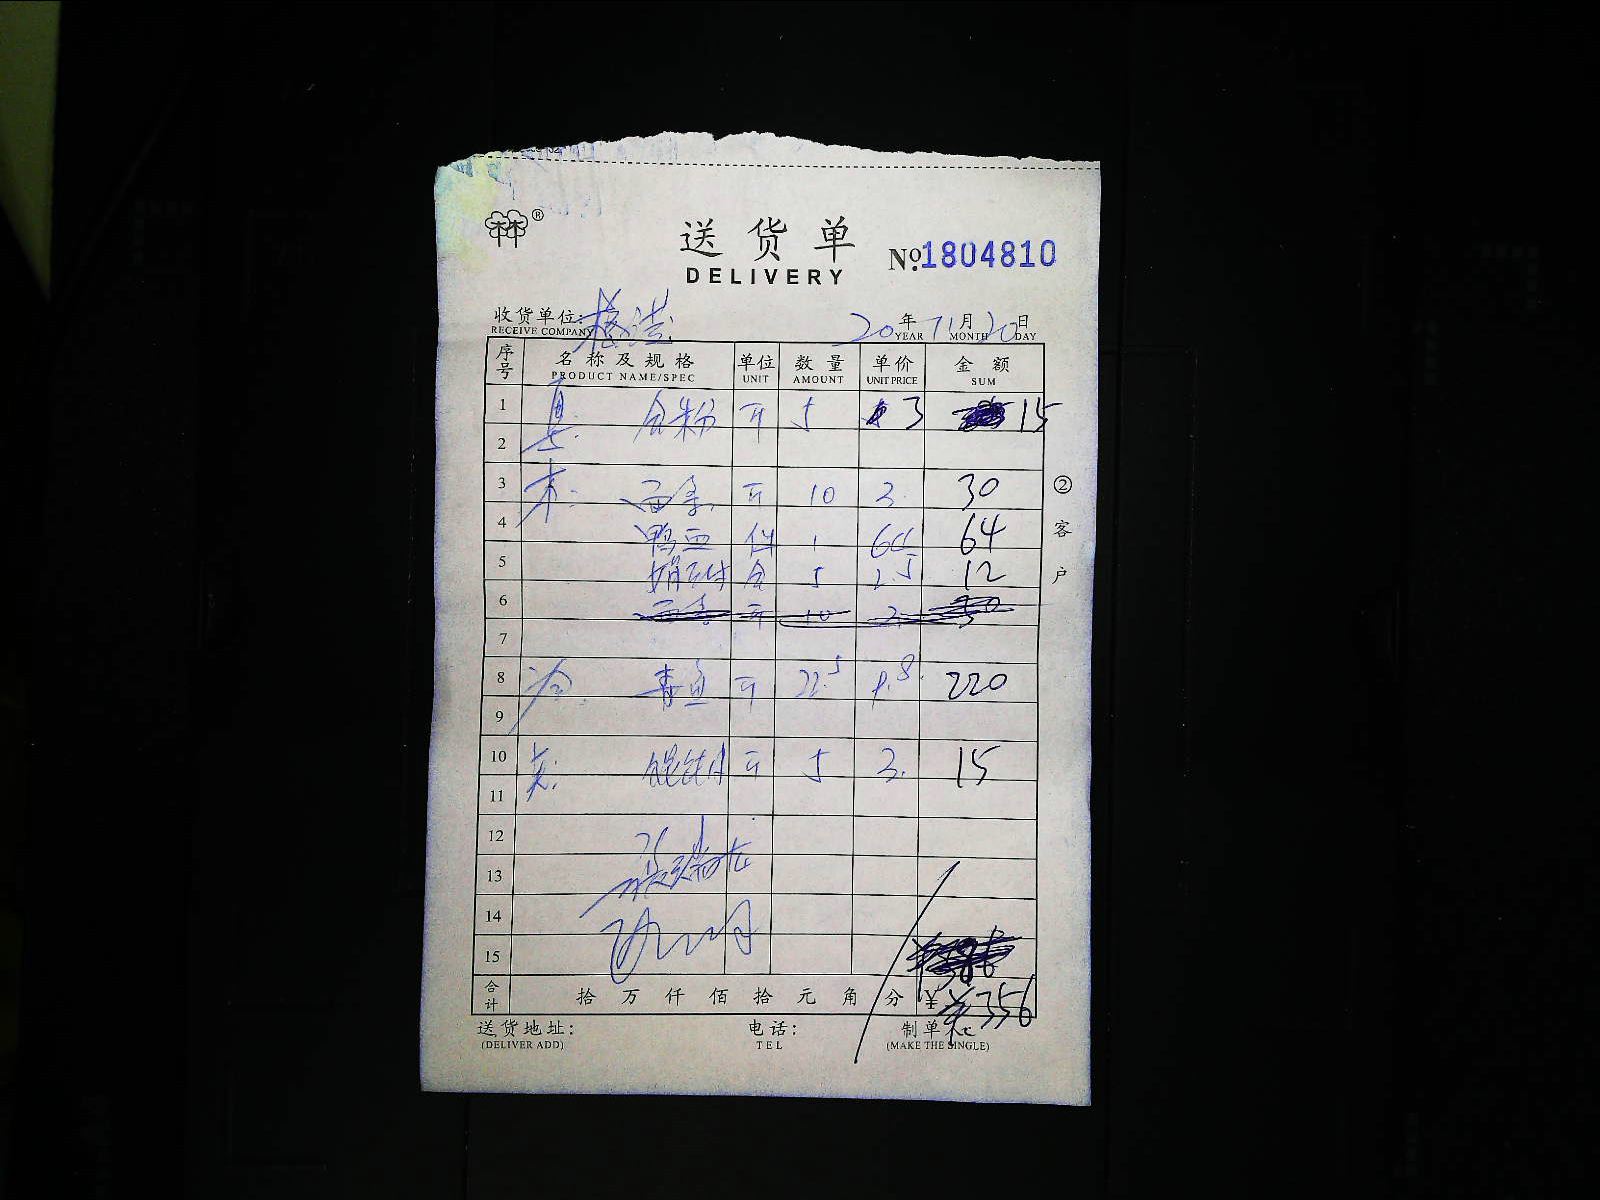 林林®
送货单
DELIVERY
No.1804810
收货单位:
RECEIVE COMPANY
20年11月20日
YEAR MONTH DAY
序号 名称及规格 单位 数量 单价 金额
PRODUCT NAME/SPEC UNIT AMOUNT UNIT PRICE SUM
1 仓粉 斤 5 3 15
2
3 面条 斤 10 3. 30
4 鸭血 件 1 64 64
5 合 5 2.5 12
6
7
8 青鱼 斤 22.5 9.8 220
9
10 馄饨皮 斤 5 3. 15
11
12
13
14
15
合计 拾万仟佰拾元角分 ¥ 356
送货地址: 电话: 制单
(DELIVER ADD) TEL (MAKE THE SINGLE)
②客户